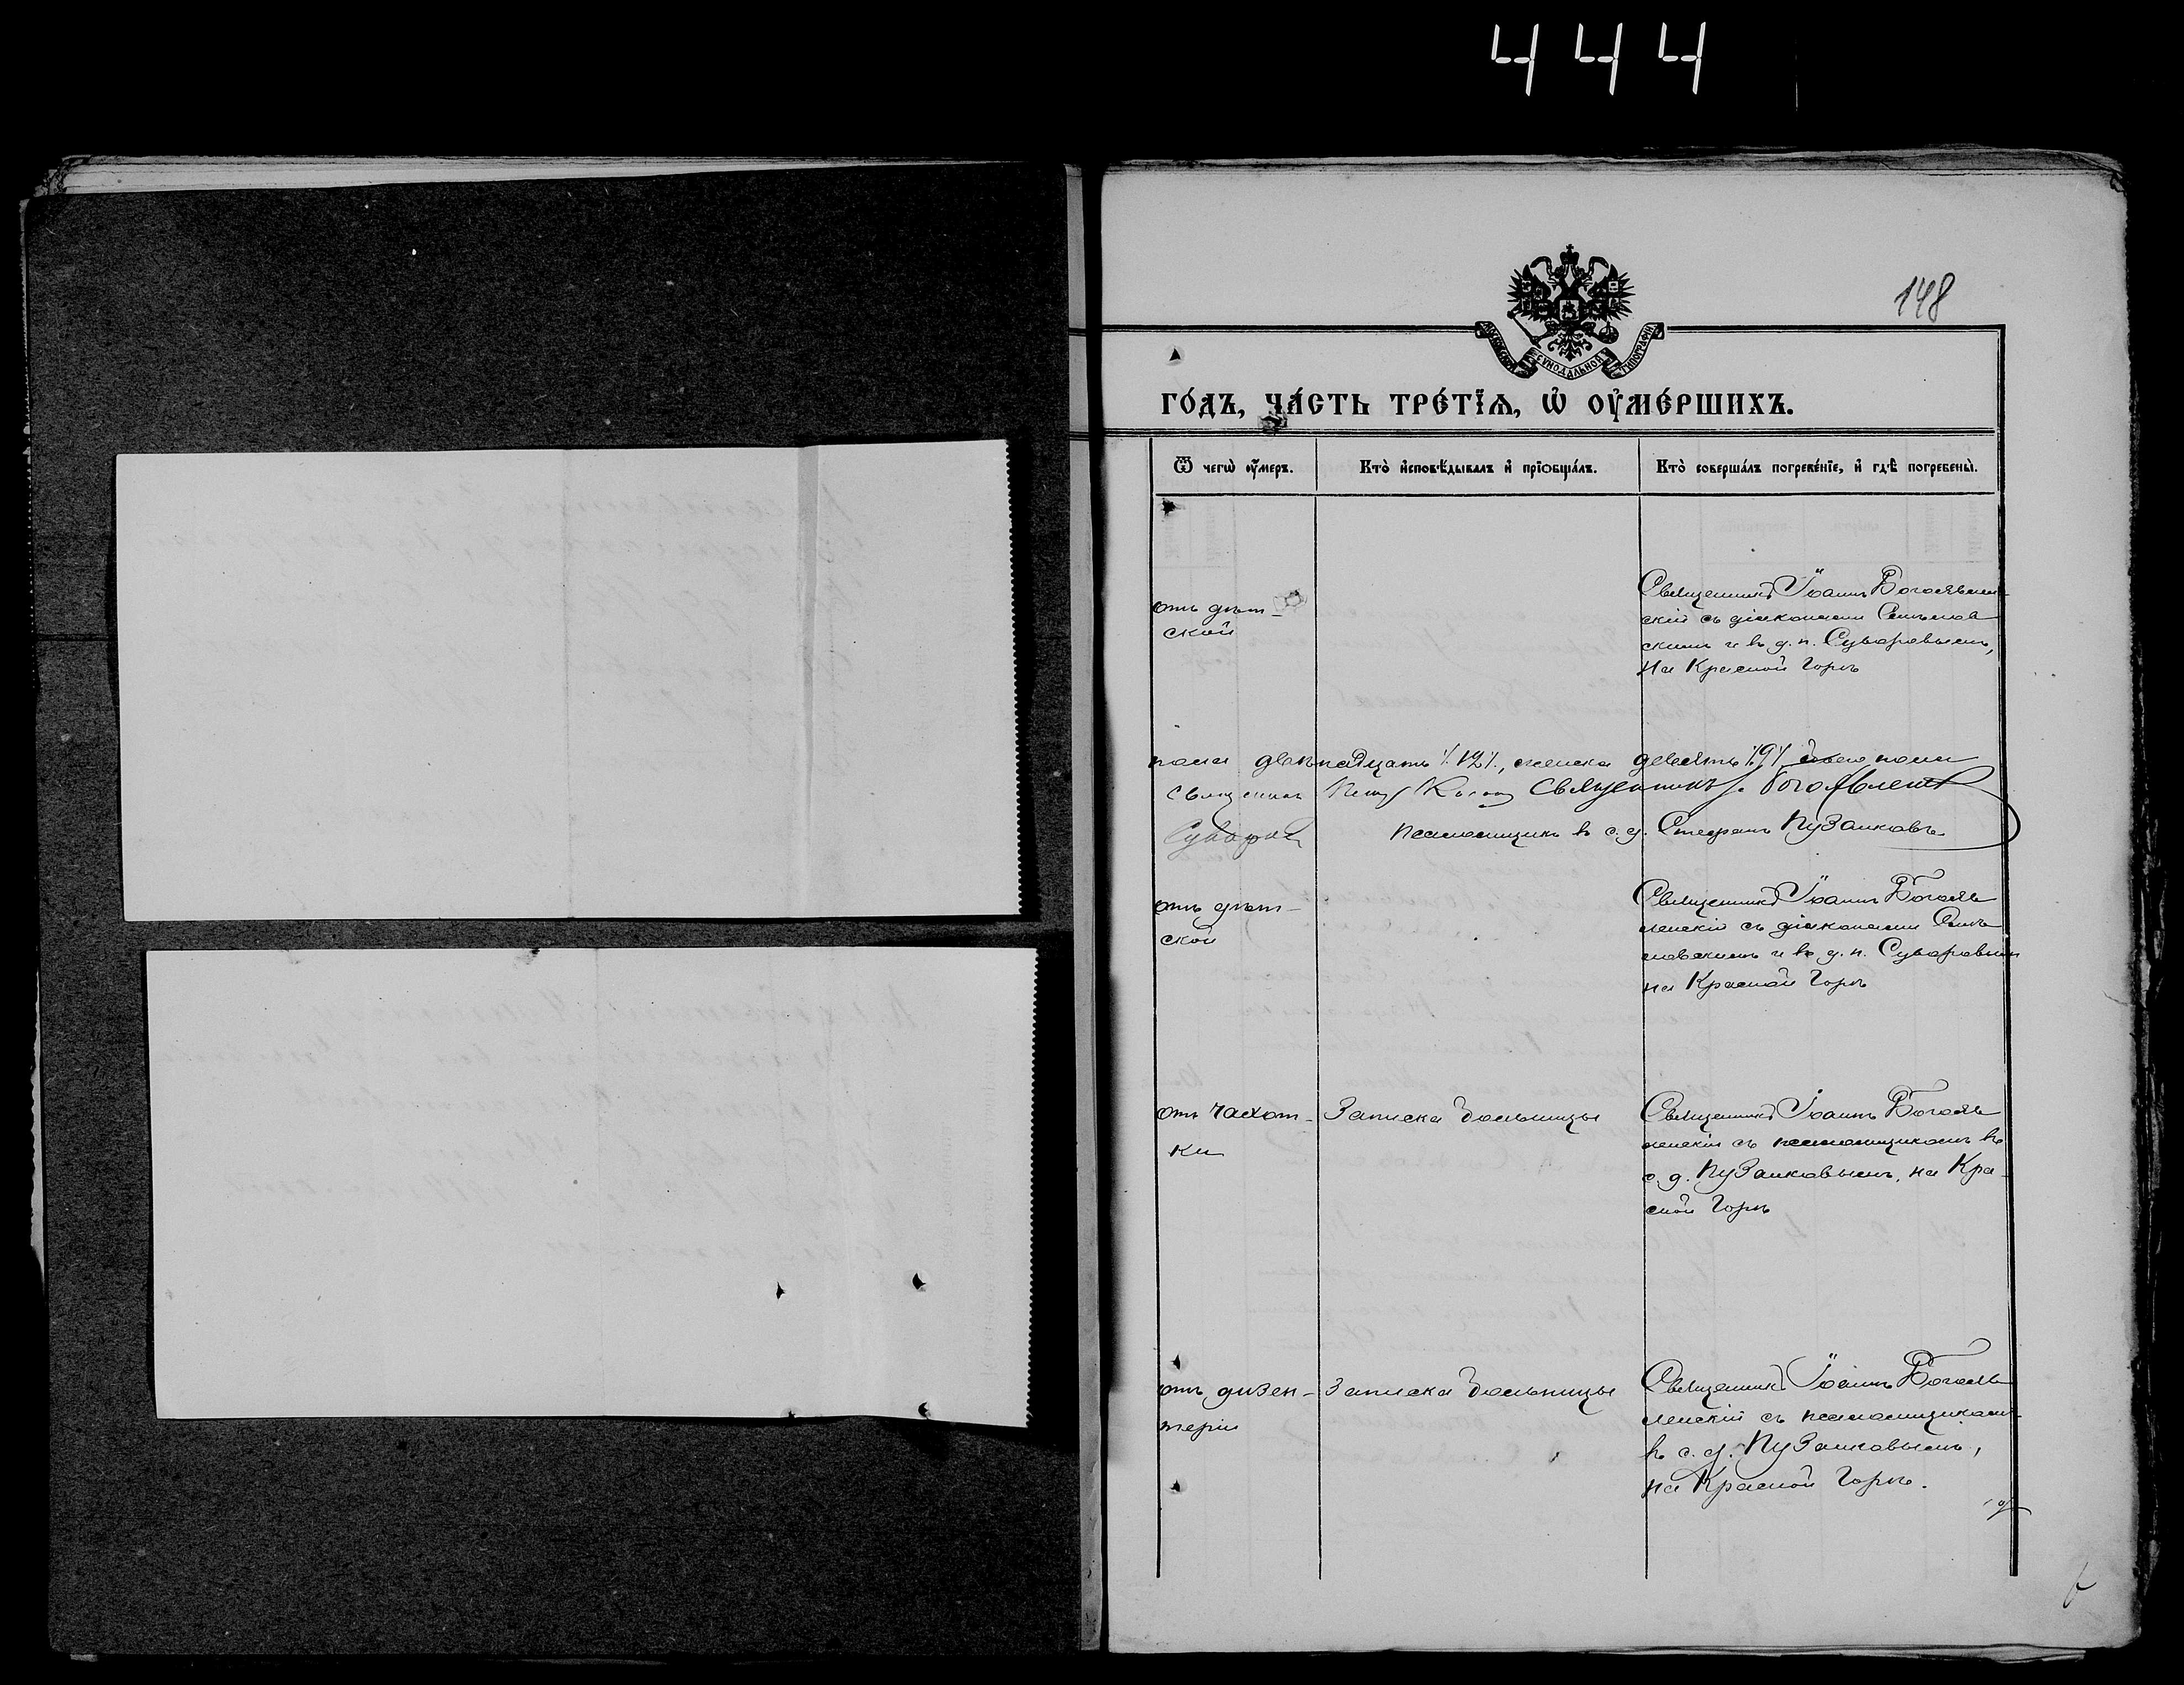 444
148
МОСКОВСКОЙ СѴНОДАЛЬНОЙ ТИПОГРАФІИ
ГО́ДЪ, ЧА́СТЬ ТРЕ́ТІѦ, Ѡ҆ ОУ҆МЕ́РШИХЪ.
Ѿ чегѡ̀ оу҆́меръ.
Кто̀ и҆сповѣ́дывалъ и҆ прїобща́лъ.
Кто̀ соверша́лъ погребе́нїе, и҆ гдѣ̀ погребены̀.
отъ дѣт-
ской
Священникъ Іоаннъ Богоявлен-
скій съ діаконами
скимъ и в д. п. Суворовымъ,
на Красной Горѣ
пола двѣнадцать /12/, женска девять /9/ пола
Священник Священникъ І. Богоявленск
Суворов
псаломщикъ в с. д. Стефанъ Пузанковъ
отъ дѣт-
ской
Священникъ Іоаннъ Богояв
ленскій съ діаконами
новскимъ и в д. п. Суворовым
на Красной Горѣ
отъ чахот-
ки
Записка больницы
Священникъ Іоаннъ Богояв
ленскій съ псаломщикомъ в
с. д. Пузанковымъ, на Кра-
сной Горѣ
отъ дизен-
теріи
Записка больницы
Священникъ Іоаннъ Богояв
ленскій съ псаломщикомъ
в с. д. Пузанковымъ,
на Красной Горѣ.